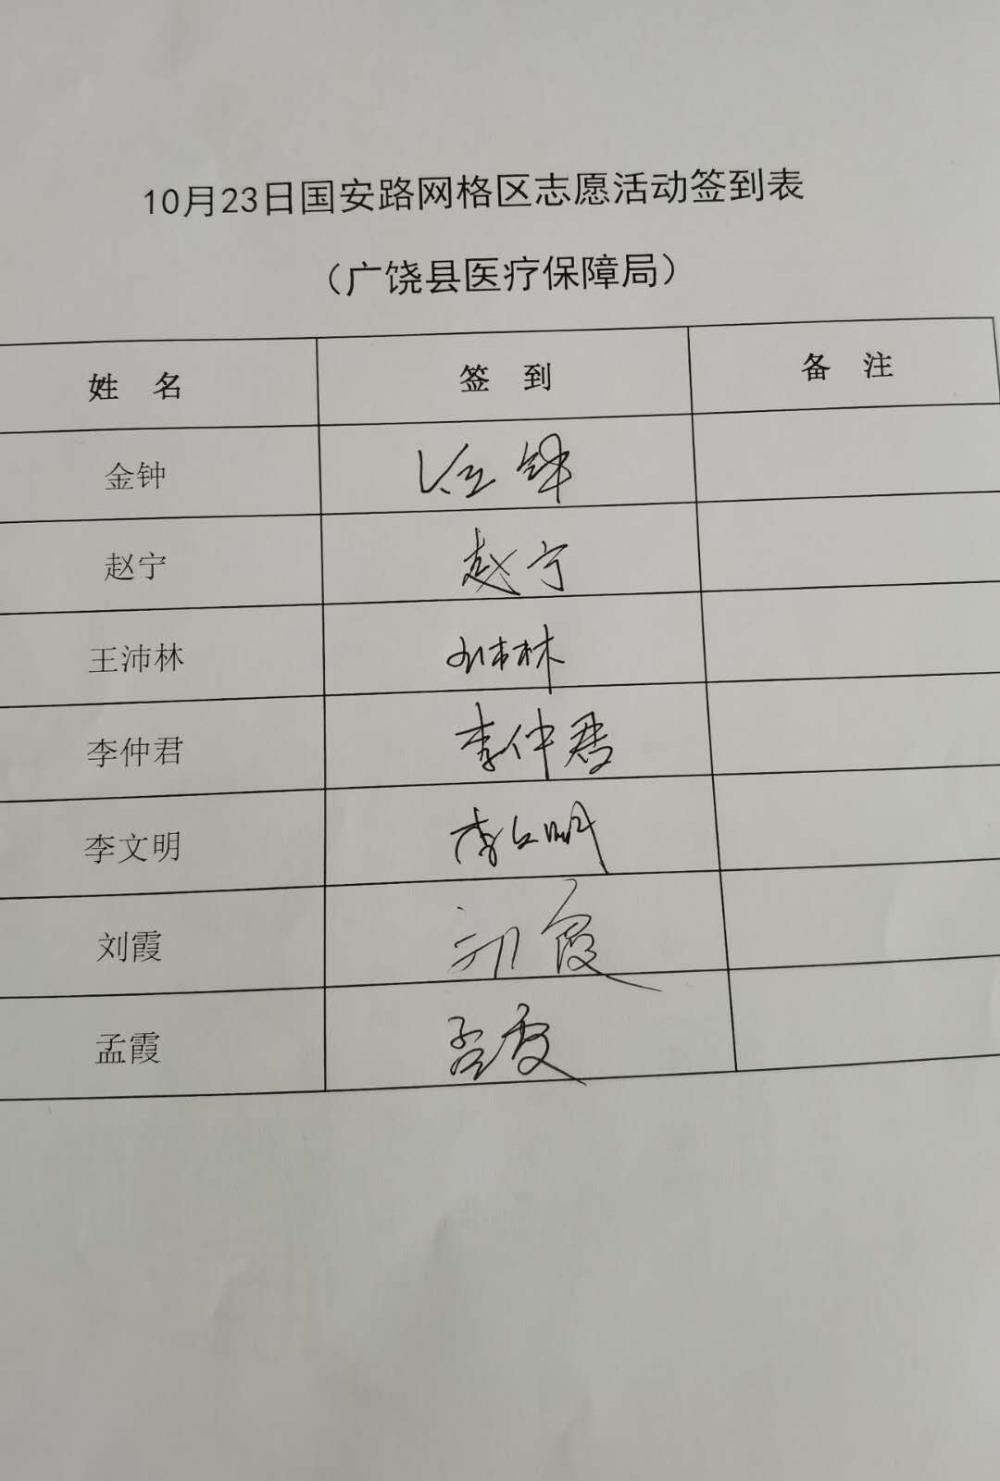 10月23日国安路网格区志愿活动签到表
（广饶县医疗保障局）
姓 名 签 到 备 注
金钟 金钟
赵宁 赵宁
王沛林 王沛林
李仲君 李仲君
李文明 李文明
刘霞 刘霞
孟霞 孟霞